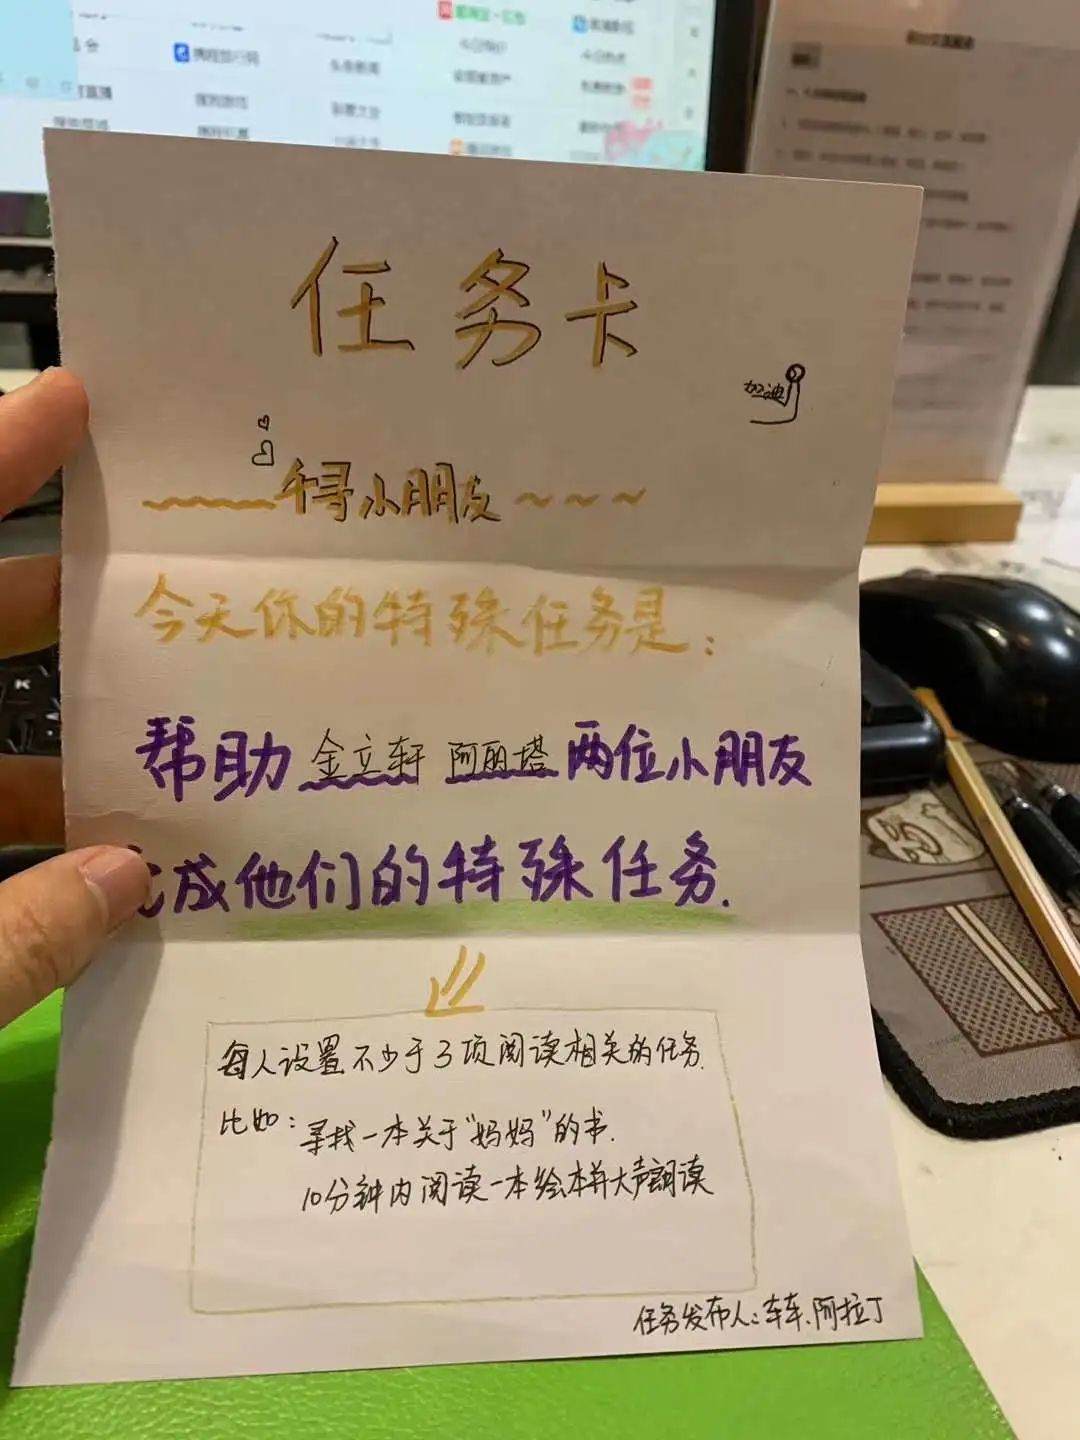 任务卡
加油
千寻小朋友
今天你的特殊任务是：
帮助 金立轩 阿丽塔 两位小朋友
完成他们的特殊任务.
每人设置不少于3项阅读相关的任务.
比如：寻找一本关于“妈妈”的书.
10分钟内阅读一本绘本并大声朗读
任务发布人：车车、阿拉丁